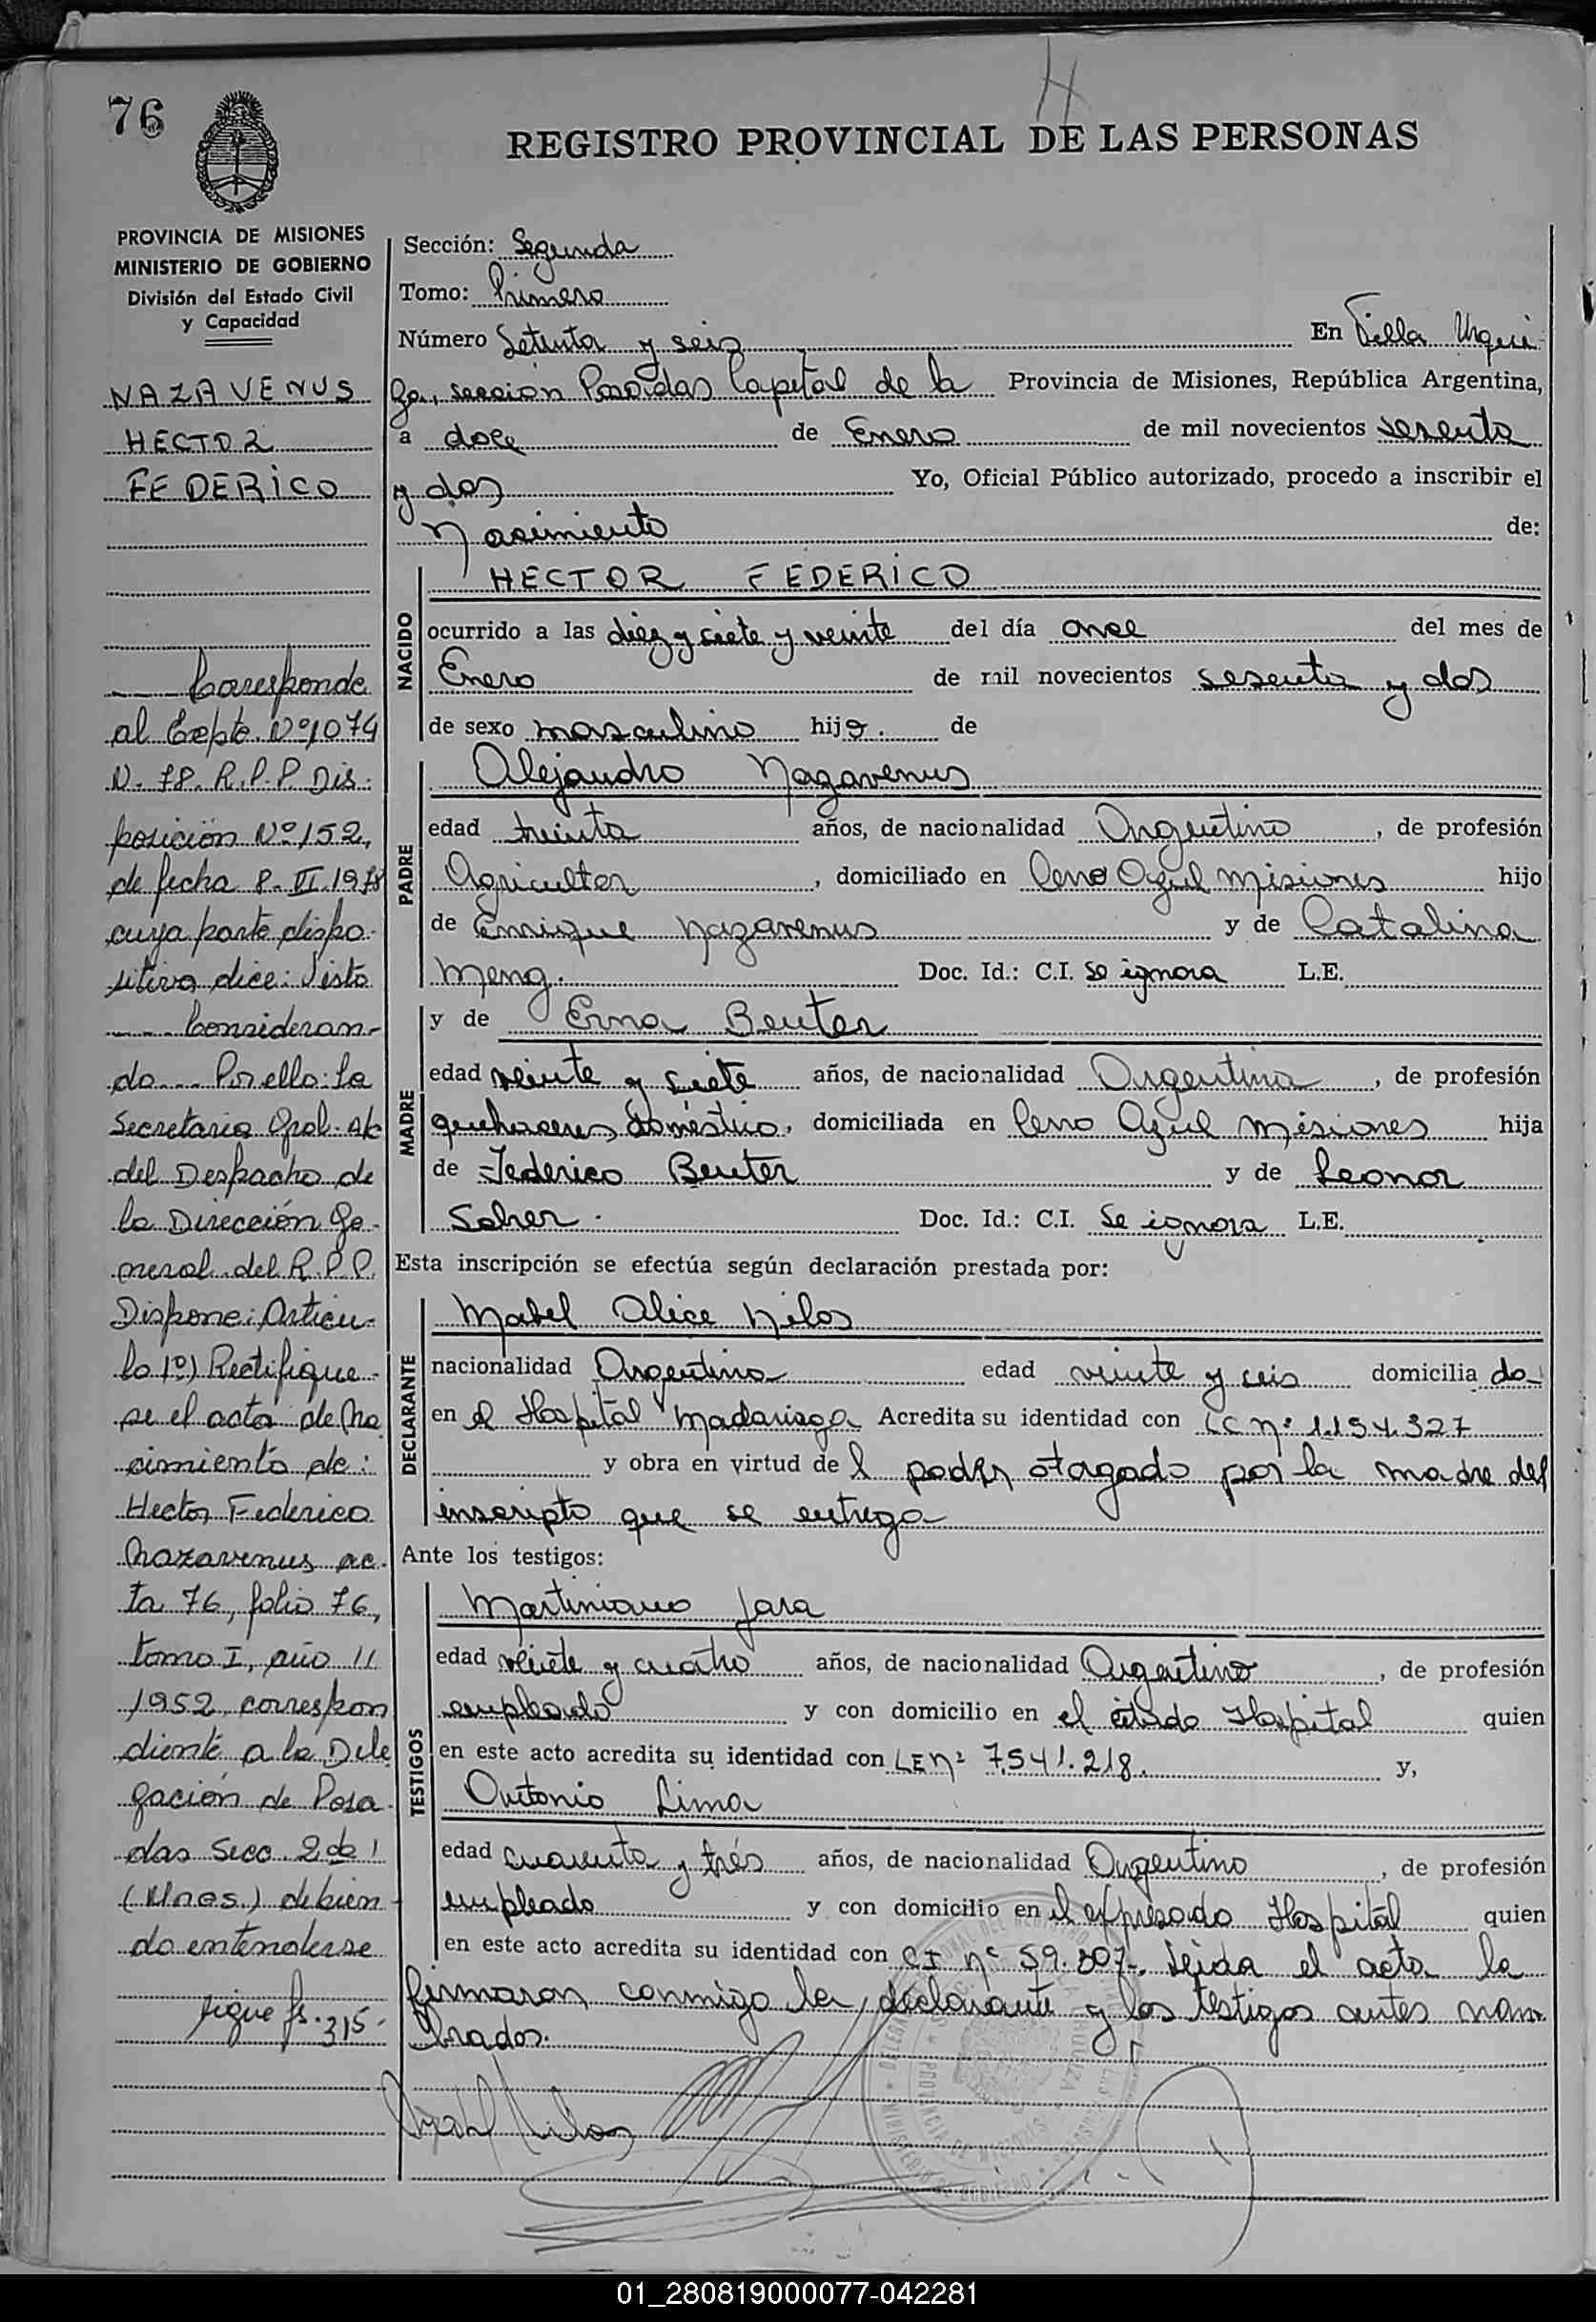 76
H
REGISTRO PROVINCIAL DE LAS PERSONAS
PROVINCIA DE MISIONES
MINISTERIO DE GOBIERNO
División del Estado Civil
y Capacidad
NAZAVENUS
HECTOR
FEDERICO
Corresponde
al Expte. Nº 1074
N. 78. R.P.P. Dis-
posición Nº 152,
de fecha 8-VI-1978
cuya parte dispo-
sitiva dice: Visto
---- Consideran-
do---- Por ello: La
Secretaria Gral. Ak
del Despacho de
la Dirección Ge-
neral del R.P.P.
Dispone: Artícu-
lo 1º) Rectifique-
se el acta de Na
cimiento de:
Hector Federico
Nazavenus ac-
ta 76, folio 76,
tomo I, año 11
1952, correspon
diente a la Dele
gación de Posa-
das Secc. 2da 1
(Mnes.) debien-
do entenderse
sigue fs. 315-
Sección: Segunda
Tomo: Primero
Número Setenta y seis En Villa Urqui
za, sección Posadas Capital de la Provincia de Misiones, República Argentina,
a doce de Enero de mil novecientos sesenta
y dos Yo, Oficial Público autorizado, procedo a inscribir el
Nacimiento de:
NACIDO
HECTOR FEDERICO
ocurrido a las diez y siete y veinte del día once del mes de
Enero de mil novecientos sesenta y dos
de sexo masculino hijo. de
PADRE
Alejandro Nazavenus
edad treinta años, de nacionalidad Argentino, de profesión
Agricultor, domiciliado en Cerro Azul Misiones hijo
de Enrique Nazavenus y de Catalina
Meng. Doc. Id.: C.I. se ignora L.E.
MADRE
y de Erna Beuter
edad veinte y siete años, de nacionalidad Argentina, de profesión
quehaceres doméstico, domiciliada en Cerro Azul Misiones hija
de Federico Beuter y de Leonor
Saher. Doc. Id.: C.I. Se ignora L.E.
Esta inscripción se efectúa según declaración prestada por:
DECLARANTE
Mabel Alice Nilos
nacionalidad Argentina edad veinte y seis domicilia da
en el Hospital Madariaga Acredita su identidad con LC nº 1.154.327
y obra en virtud de l poder otagado por la madre del
inscripto que se entrega
Ante los testigos:
TESTIGOS
Martiniano Jara
edad veinte y cuatro años, de nacionalidad Argentino, de profesión
empleado y con domicilio en el citado Hospital quien
en este acto acredita su identidad con LE nº 7.541.218. y,
Antonio Lima
edad cuarenta y trés años, de nacionalidad Argentino, de profesión
empleado y con domicilio en el expresado Hospital quien
en este acto acredita su identidad con CI nº 59.307-. Leida el acta la
firmaron conmigo la declarante y los testigos antes nom-
brados.
01_280819000077-042281